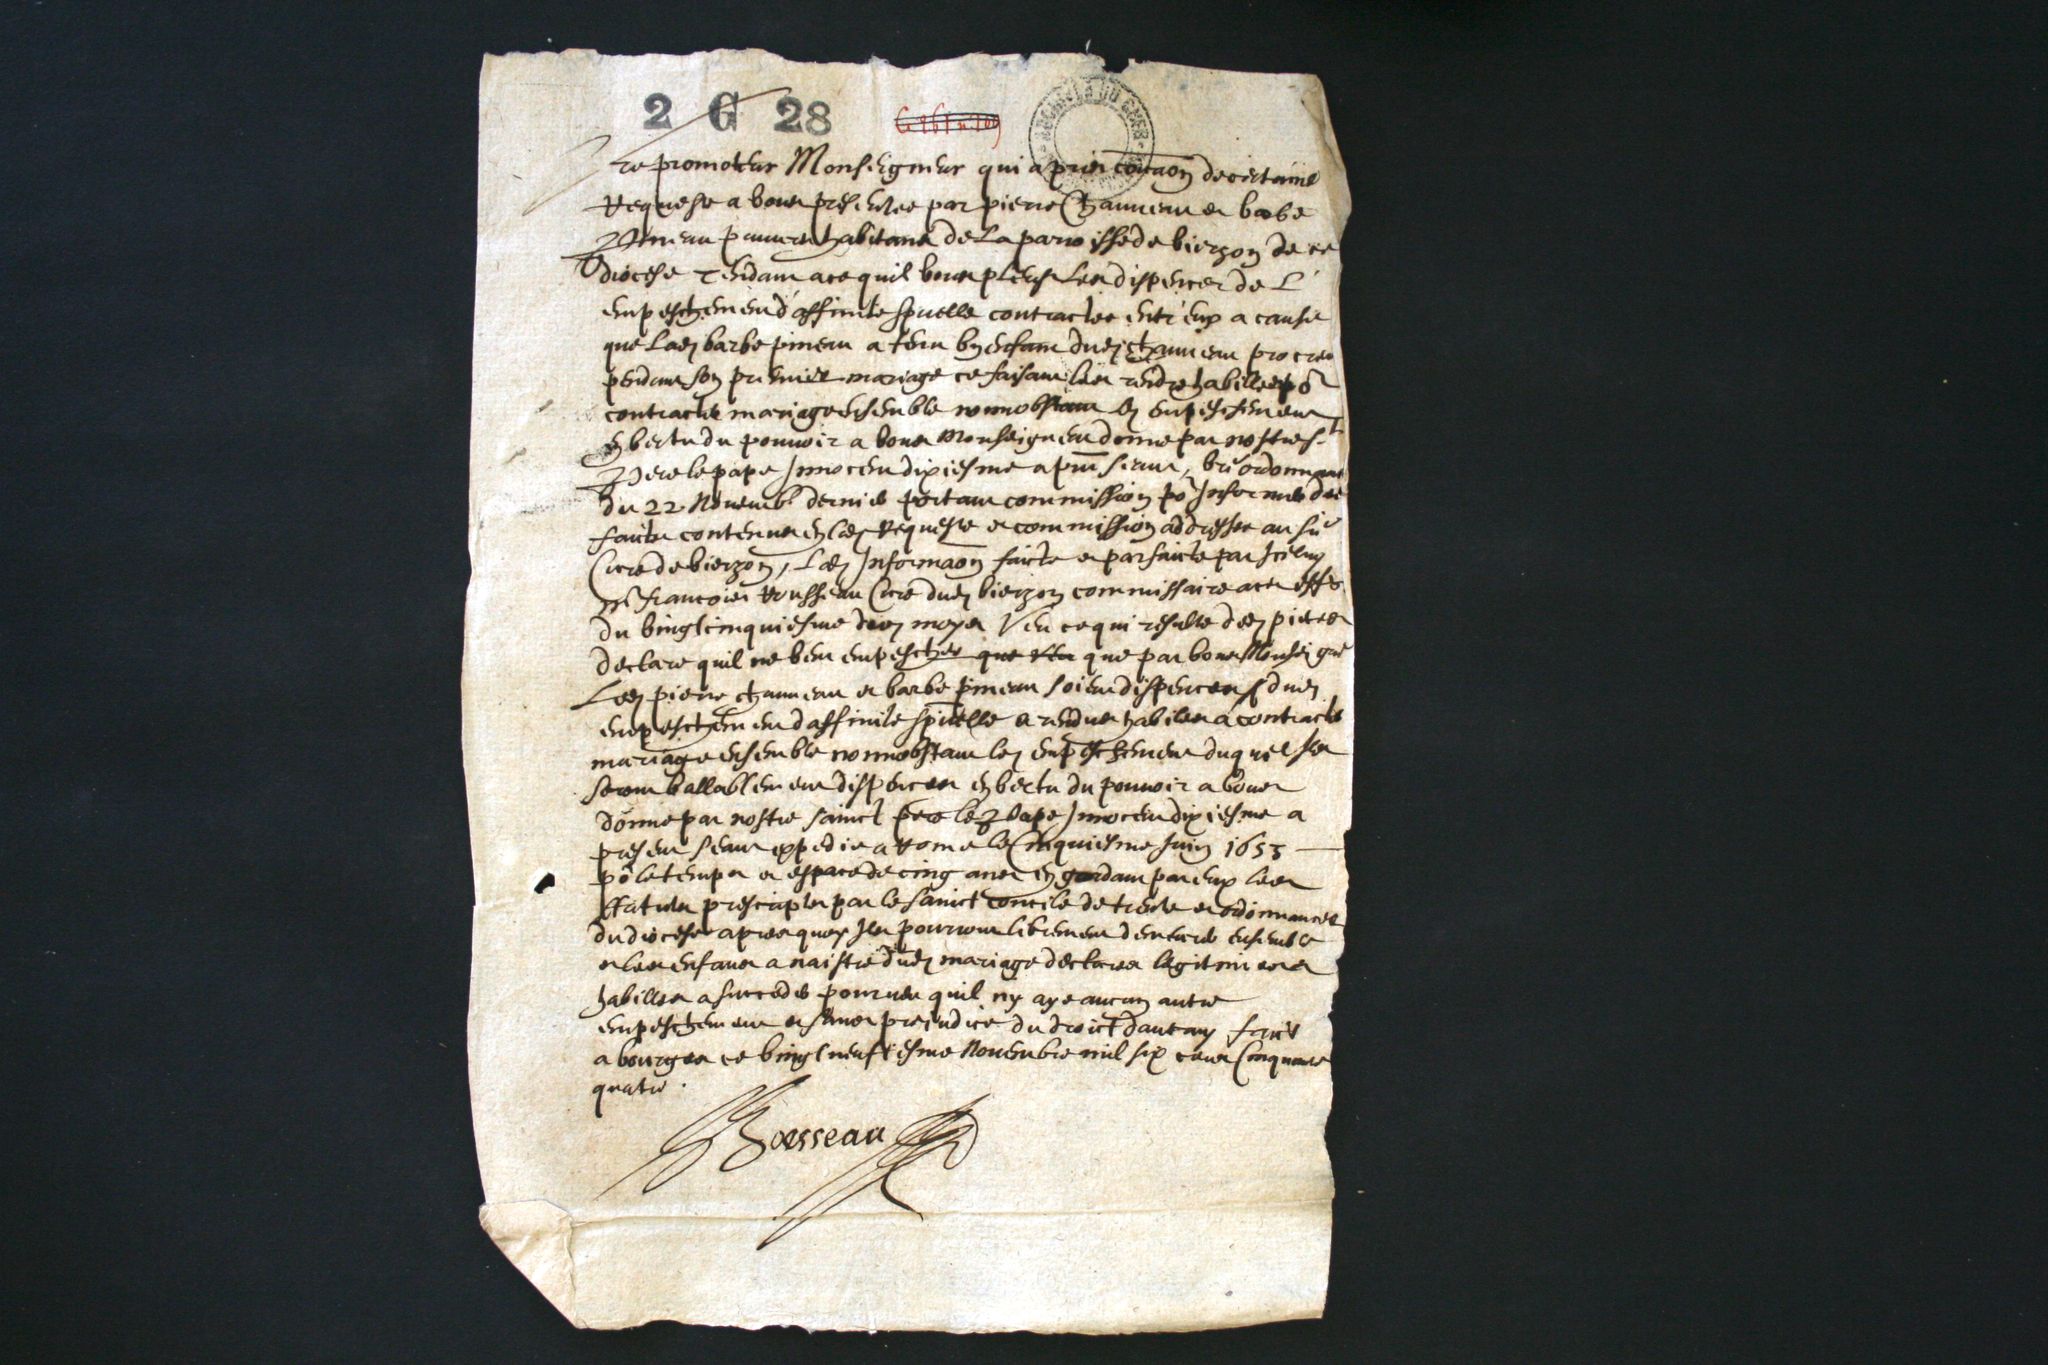 2 G 28
ARCHIVES DU CHER
Le promoteur Monseigneur qui a pris com̃aōn de certaine
Requeste a vous presentee par pierre Chauveau et barbe
Pineau pauvres habitans de La parroisse de vierzon de ce
diocese tendant a ce quil vous pleust les dispencer de L'
empeschement d'affinité spũelle contractee entr'eux a cause
que Lad barbe pineau a tenu un enfant dud chauveau procree
pendant son premier mariage ce faisant les rendre habilles pōr
contracter mariage ensemble nonnobstant led empeschement
En vertu du pouvoir a vous Monseigneur donne par nostre st
Pere le pape Innocent dixiesme a pn̄t seant, vr̄e ordonnance
du 22 Novemb. dernier portant commission pōr Informer des
faits contenus en lad Requeste et commission addressee au sūr
Curé de vierzon, Lad Informaōn faicte et parfaicte par Iceluy
Mr françois Rousseau Curé dud vierzon commissaire a cet effet
du vingt cinquiesme dud moys Veu ce qui resulte desd pieces
declare quil ne veut empescher que par vous Monseigr
Lesd pierre chauveau et barbe pineau soient dispences dud
empeschement d'affinité spir̄elle et rendus habiles a contracter
mariage ensemble nonnobstant led empeschement duquel Ils
seront vallablement dispences en vertu du pouvoir a vous
donné par nostre sainct pere le Pape Innocent dixiesme a
present seant expedié a Rome le Cinquiesme Juin 1653
pōr le temps et espace de cinq ans En gardant par eux les
statuts prescripts par le sainct concile de trente et ordonnances
du diocese apres quoy Ils pourront librement demeurer ensemble
et les enfans a naistre dud mariage declares legitimes et
habilles a succeder pourveu quil ny aye aucun autre
empeschement et sans prejudice du droict dautruy faict
a bourges ce vingt neufiesme Novembre mil six cens Cinquante
quatre.